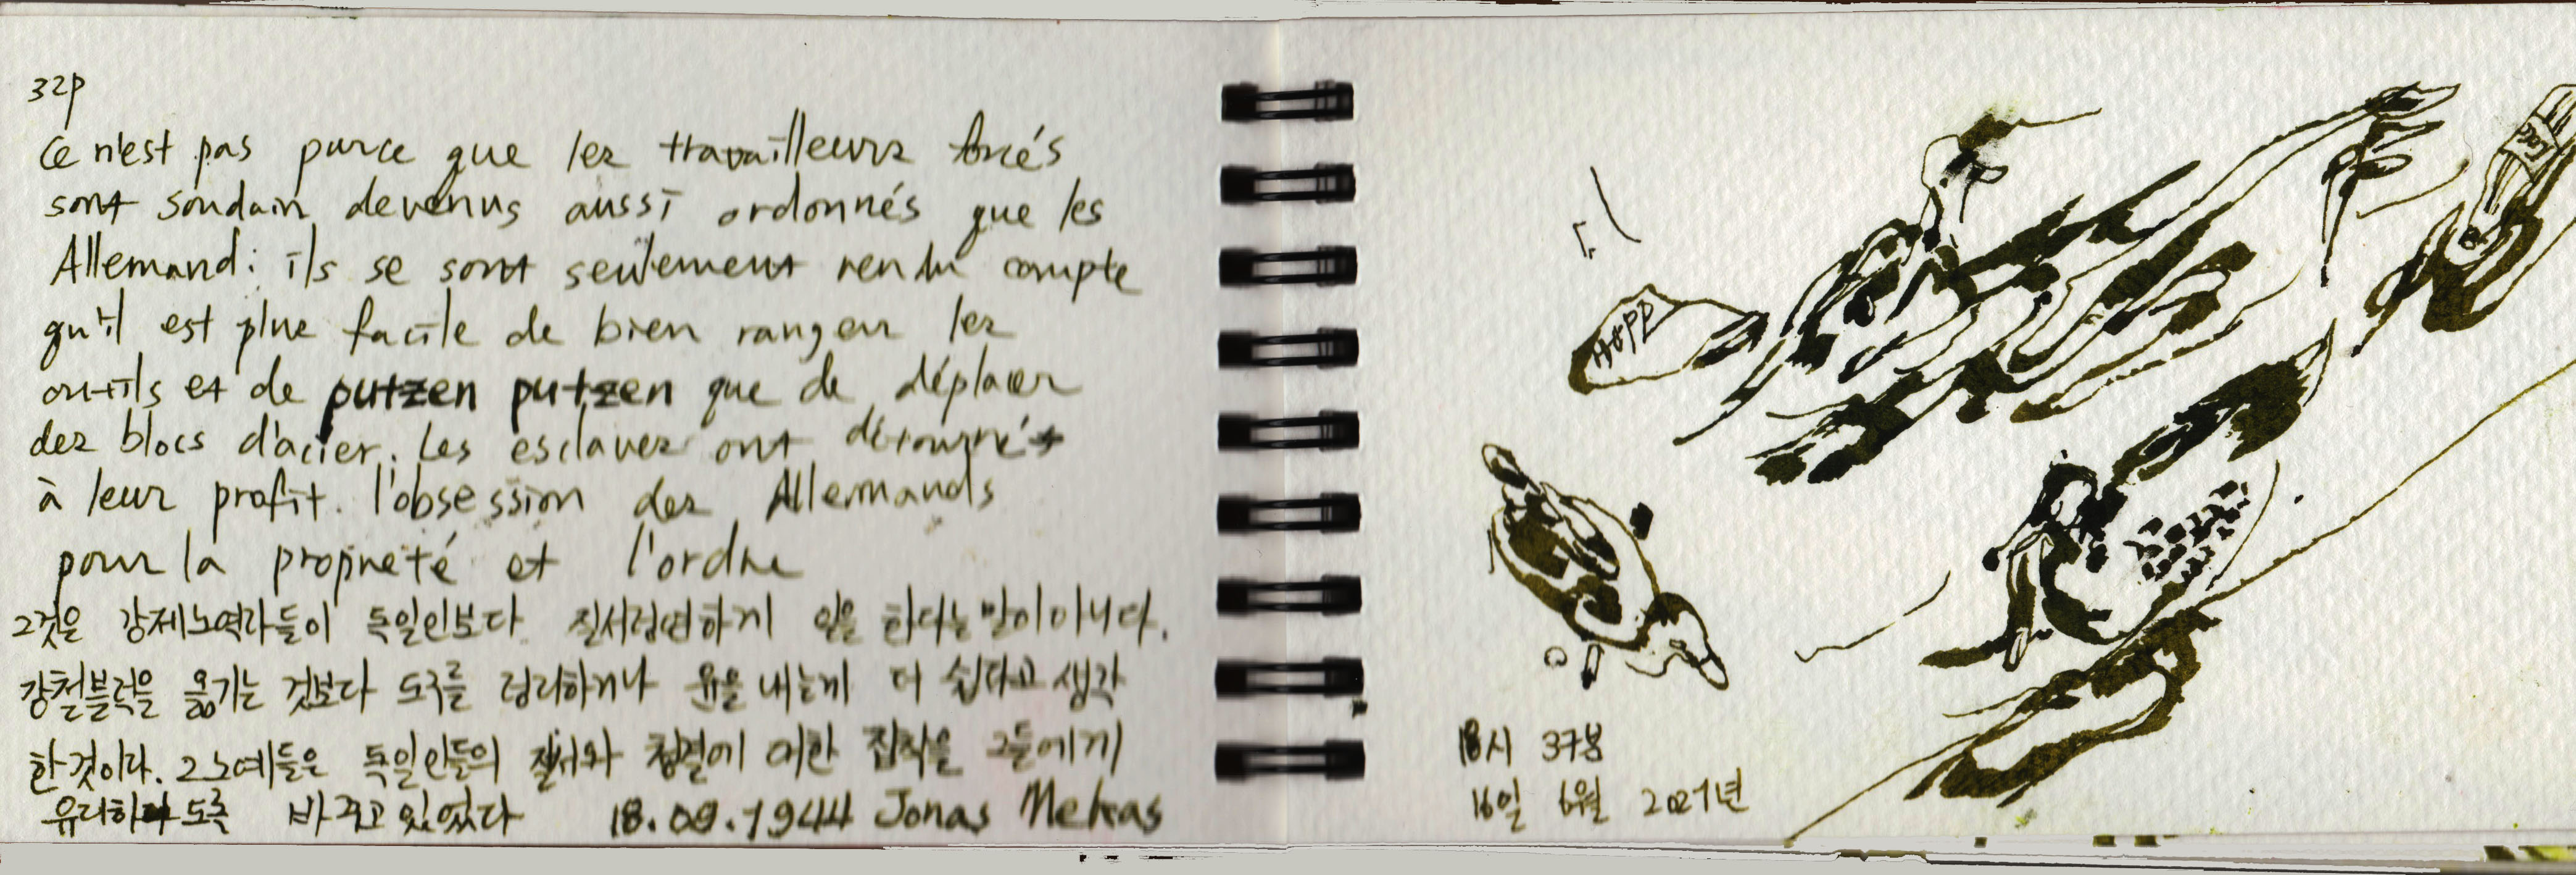 32p
Ce n'est pas parce que les travailleurs forcés
sont soudain devenus aussi ordonnés que les
Allemand: ils se sont seulement rendu compte
qu'il est plue facile de bien ranger les
outils et de putzen putzen que de déplacer
des blocs d'acier. Les esclaves ont détourné
à leur profit. l'obsession des Allemands
pour la propreté et l'ordre
그것은 강제노역자들이 독일인보다 질서정연하게 일을 한다는 말이아니다.
강철블럭을 옮기는 것보다 도구를 정리하거나 윤을 내는게 더 쉽다고 생각
한것이다. 그노예들은 독일인들의 질서와 청결에 대한 집착을 그들에게
유리하도록 바꾸고 있었다 18.09.1944 Jonas Mekas
HOPP
18시 37분
16일 6월 2021년